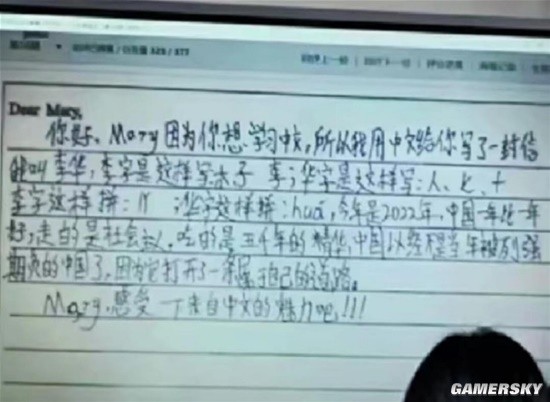 323 / 377
Dear Mary,
你好、Mary因为你想学习中文,所以我用中文给你写了一封信
我叫李华,李字是这样写:木子 李;华字是这样写:人、匕、十
李字这样拼:lǐ 华字这样拼:huá,今年是2022年,中国一年比一年
好,走的是社会主义,吃的是五千年的精华,中国以经不是当年被列强
期负的中国了,因为它打开了一条属于自己的道路。
Mary,感受一下来自中文的魅力吧!!!
GAMERSKY